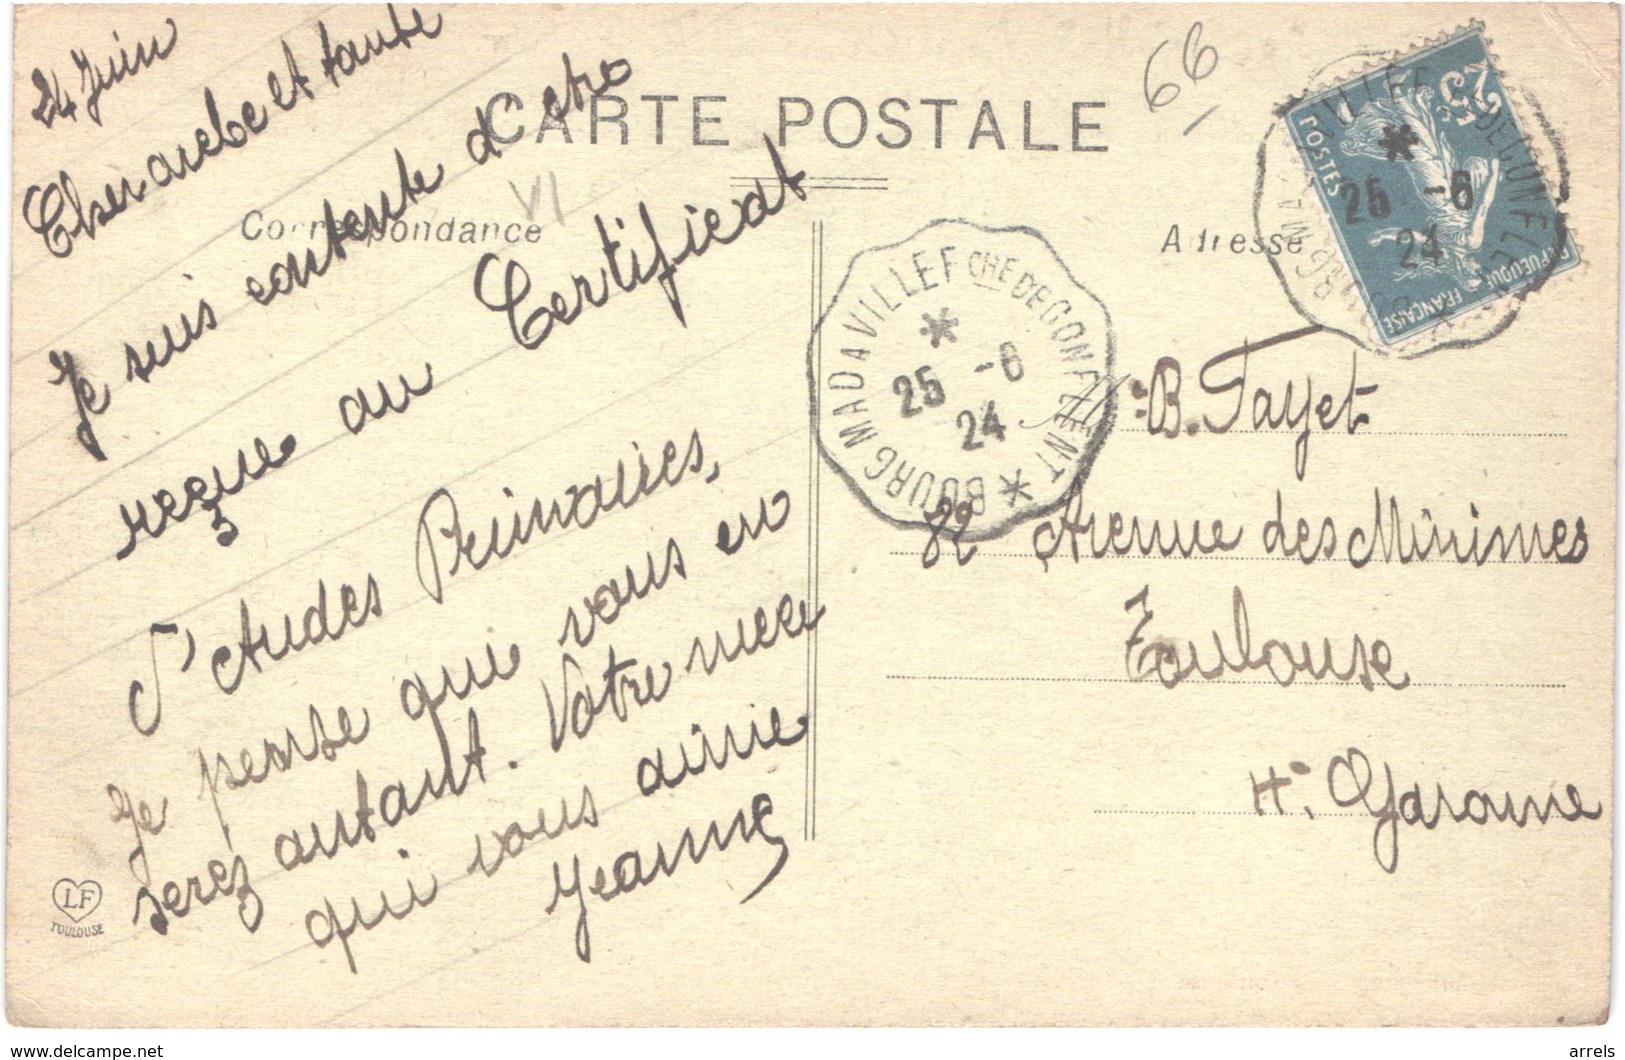 24 Juin
Cher oncle et tante
Je suis contente d'etre
reçue au Certificat
d'Etudes Primaires,
je pense que vous en
serez autant. Votre niece
qui vous aime
Jeanne
CARTE POSTALE
Correspondance
VI
66
Adresse
BOURG MADAVILLE Fche DEGONFLEMENT
25 -6
24
25
POSTES
REPUBLIQUE FRANÇAISE
25 -6
24
B. Fayet
82 Avenue des Minimes
Toulouse
Hte Garonne
LF
TOULOUSE
www.delcampe.net
arrels